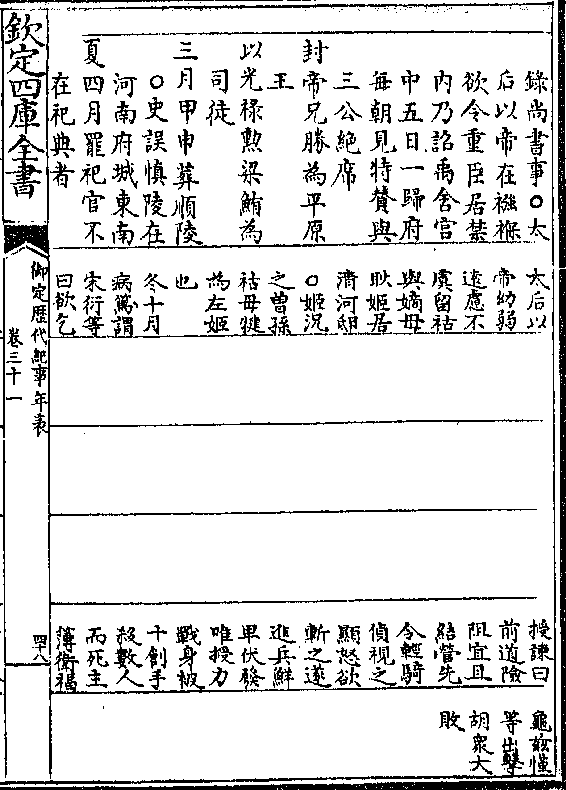 錄尚書事○太
后以帝在襁褓
欲令重臣居禁
内乃詔禹舍宫
中五日一歸府
每朝見特贊與
三公絶席
封帝兄勝為平原
王
以光祿勲梁鮪為
司徒
三月甲申葬順陵
○史誤慎陵在
河南府城東南
夏四月罷祀官不
在祀典者
太后以
帝幼弱
逺慮不
虞留祜
與嫡母
耿姬居
清河邸
○姬况
之曽孫
祜母犍
為左姬
也
冬十月
病篤謂
宋衍等
曰欲乞
授諫曰
前道險
阻宜且
結營先
令輕騎
偵視之
顯怒欲
斬之遂
進兵鮮
卑伏發
唯授力
戰身被
十創手
殺數人
而死主
簿衛福
龜兹懂
等出擊
胡衆大
敗
欽定四庫全書
御定歴代紀事年表
卷三十一
四十八